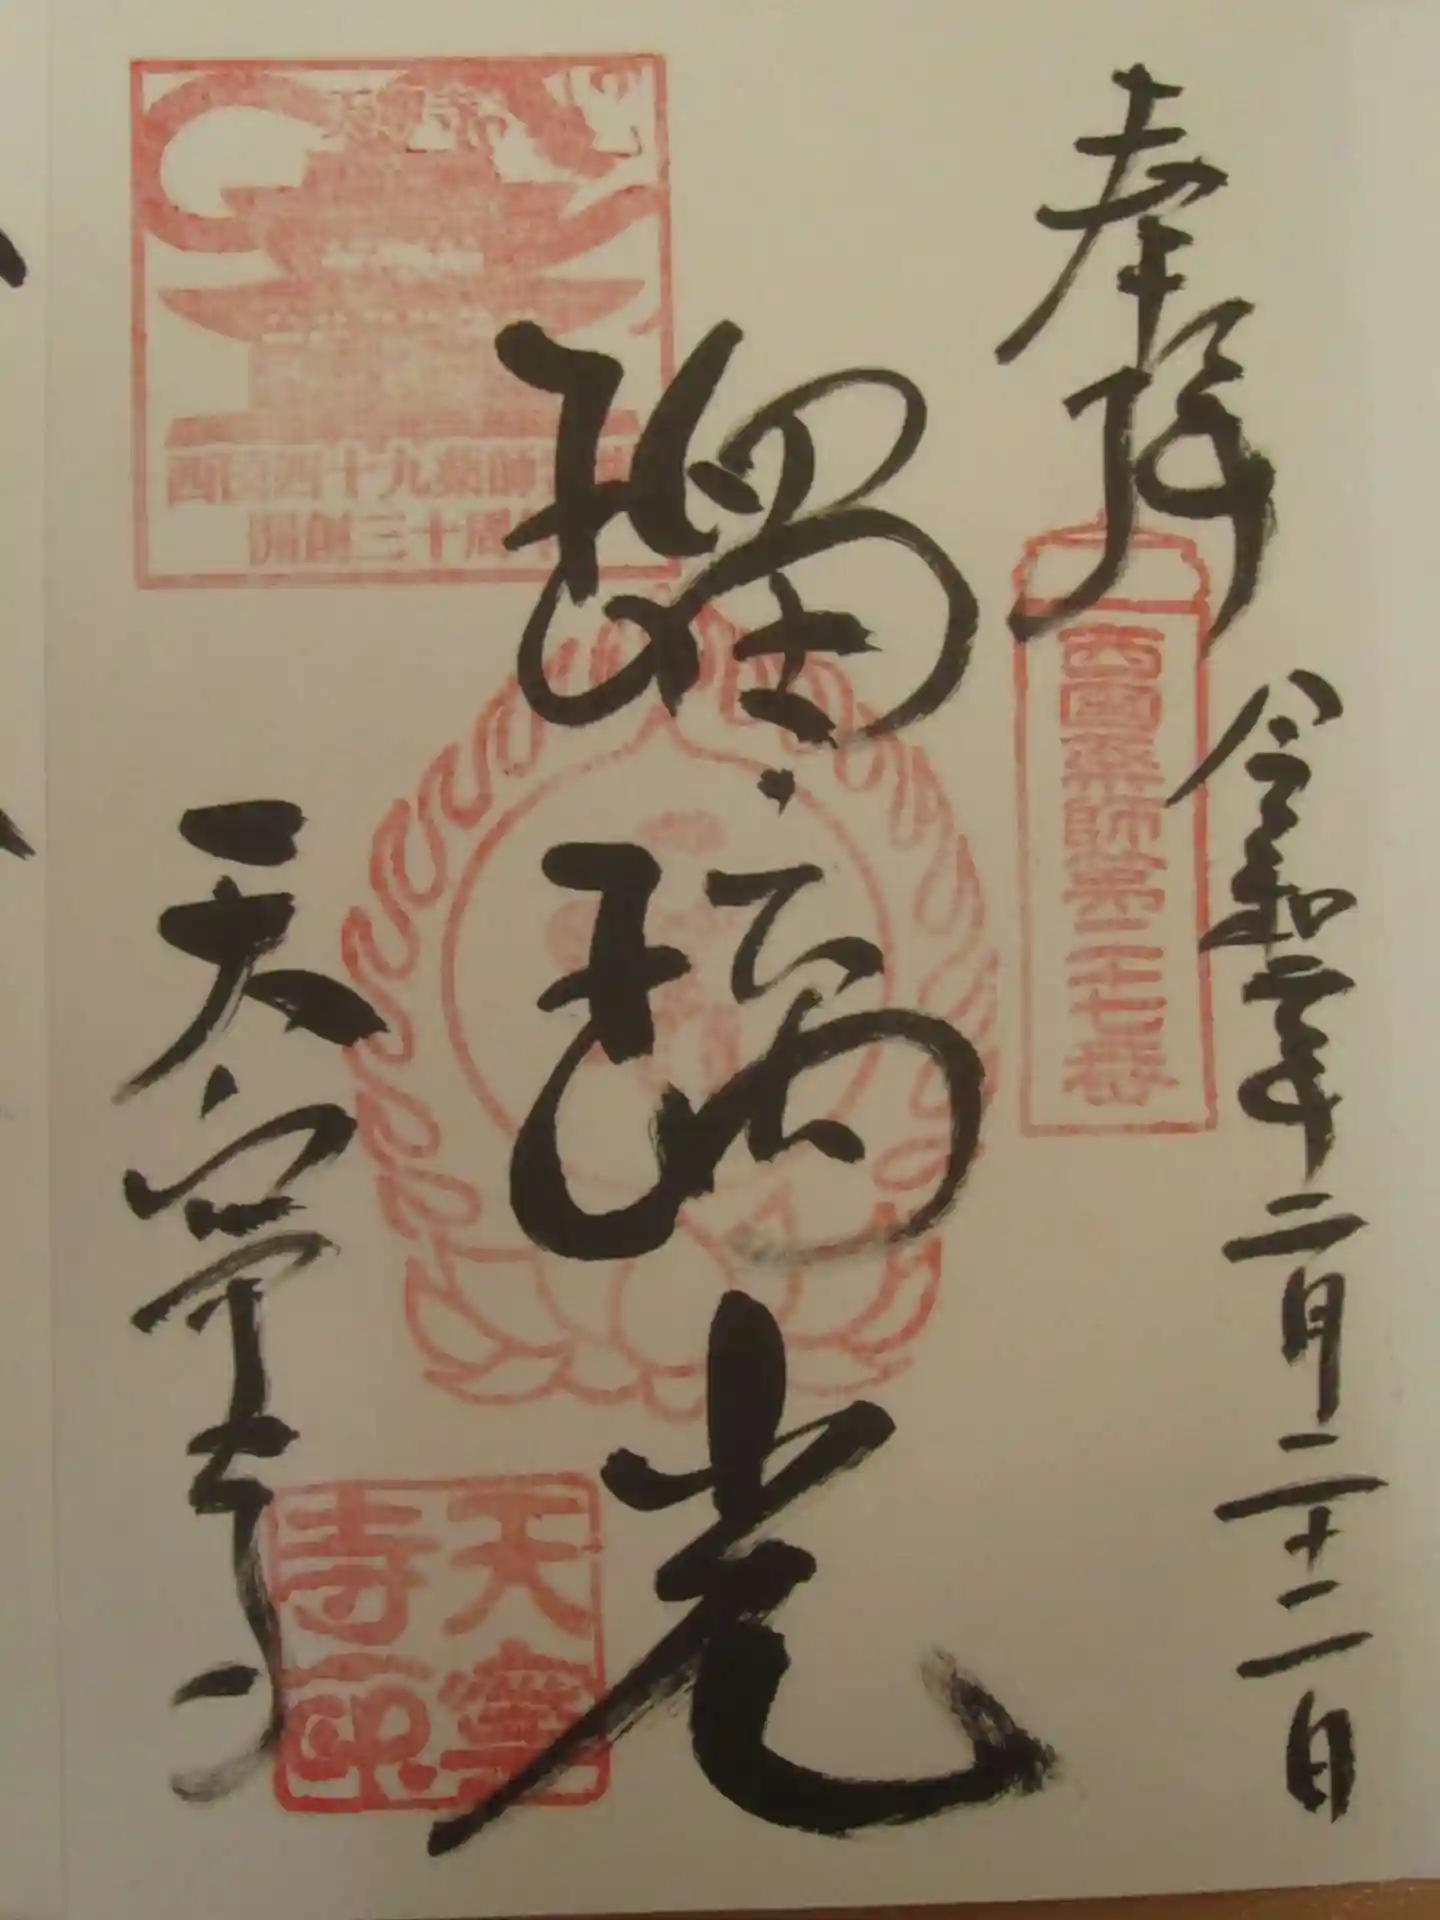 奉拝
西國薬師第二十七番
令和二年二月二十二日
瑠璃光
天寧寺
天寧寺
西国四十九薬師霊場
開創三十周年
天寧寺印